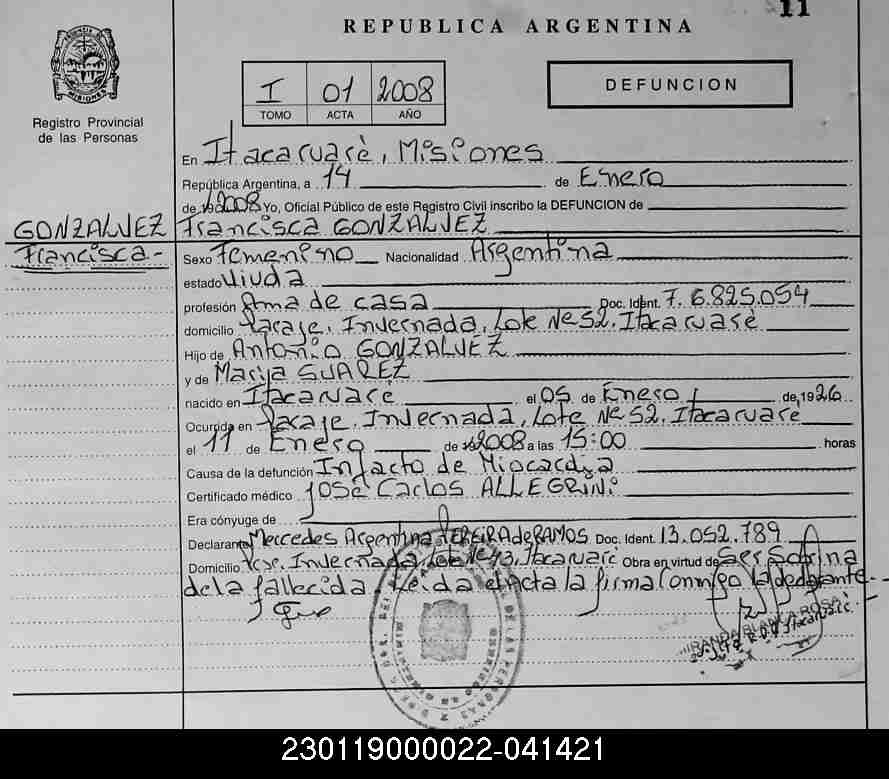 11
REPUBLICA ARGENTINA
I 01 2008
TOMO ACTA AÑO
DEFUNCION
MISIONES
Registro Provincial
de las Personas
En Itacaruaré, Misiones
República Argentina, a 14 de Enero
de 2008 Yo, Oficial Público de este Registro Civil inscribo la DEFUNCION de
GONZALVEZ
Francisca -
Francisca GONZALVEZ
Sexo Femenino Nacionalidad Argentina
estado Viuda
profesión Ama de casa Doc. Ident. F. 6.825.054
domicilio Paraje. Invernada, Lote Nº 52. Itacaruaré
Hijo de Antonio GONZALVEZ
y de Maria SUAREZ
nacido en Itacaruaré el 05 de Enero de 1926
Ocurrida en Paraje. Invernada, Lote Nº 52. Itacaruaré
el 11 de Enero de 2008 a las 15:00 horas
Causa de la defunción Infarto de Miocardia
Certificado médico José Carlos ALLEGRINI
Era cónyuge de
Declarante Mercedes Argentina PEREIRA de RAMOS Doc. Ident. 13.052.789
Domicilio Invernada, Lote Nº 43, Itacaruaré Obra en virtud de Ser Sobrina
de la fallecida. Leída el acta la firma Conmigo la declarante -
MIRANDA BLANCA ROSA
Itacaruaré
230119000022-041421